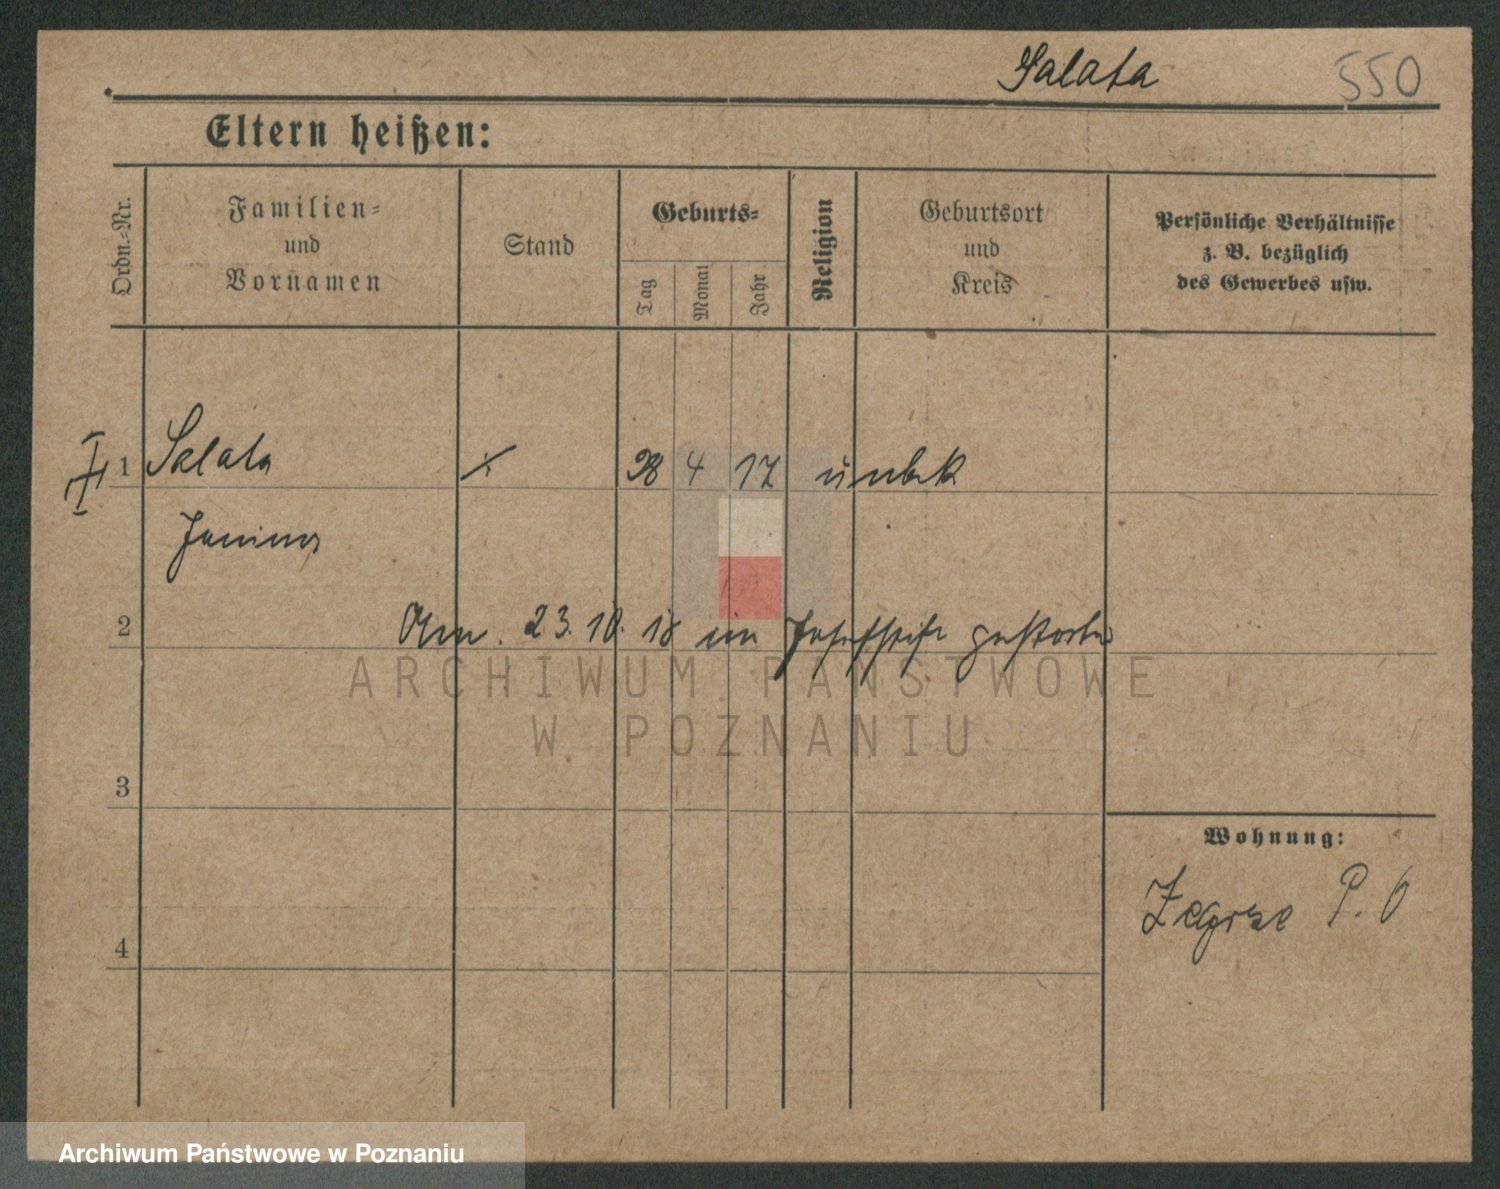 Salata 550
Eltern heißen:
Ordn.-Nr.
Familien-
und
Vornamen
Stand
Geburts-
Tag
Monat
Jahr
Religion
Geburtsort
und
Kreis
Persönliche Verhältnisse
z. B. bezüglich
des Gewerbes usw.
1 Salata 28 4 17 unbek
Janina
2 Am. 23.10.18 im Josefstift gestorben
ARCHIWUM PAŃSTWOWE
W POZNANIU
3
Wohnung:
Zegrze P. O
4
Archiwum Państwowe w Poznaniu